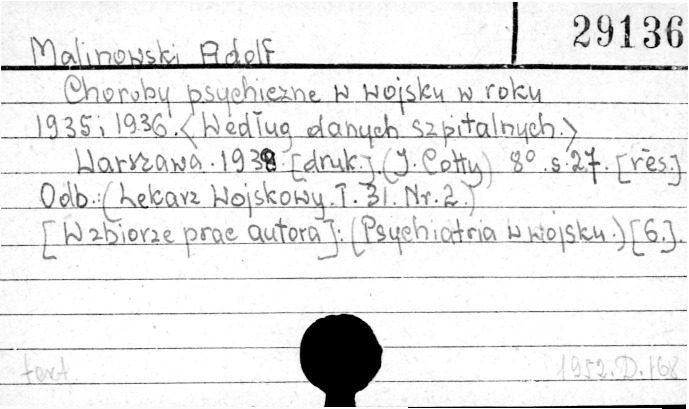 29136
Malinowski Adolf
Choroby psychiczne w wojsku w roku
1935 i 1936. <Według danych szpitalnych.>
Warszawa. 1938. [druk.] (J. Cotty) 8° s. 27. [rés.]
Odb.: (Lekarz Wojskowy. T. 31. Nr. 2.)
[W zbiorze prac autora]: (Psychiatria w wojsku.) [6.].
1952. D. 168